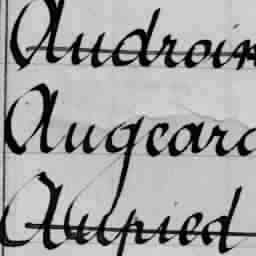 Audroin
Augeard
Aupied